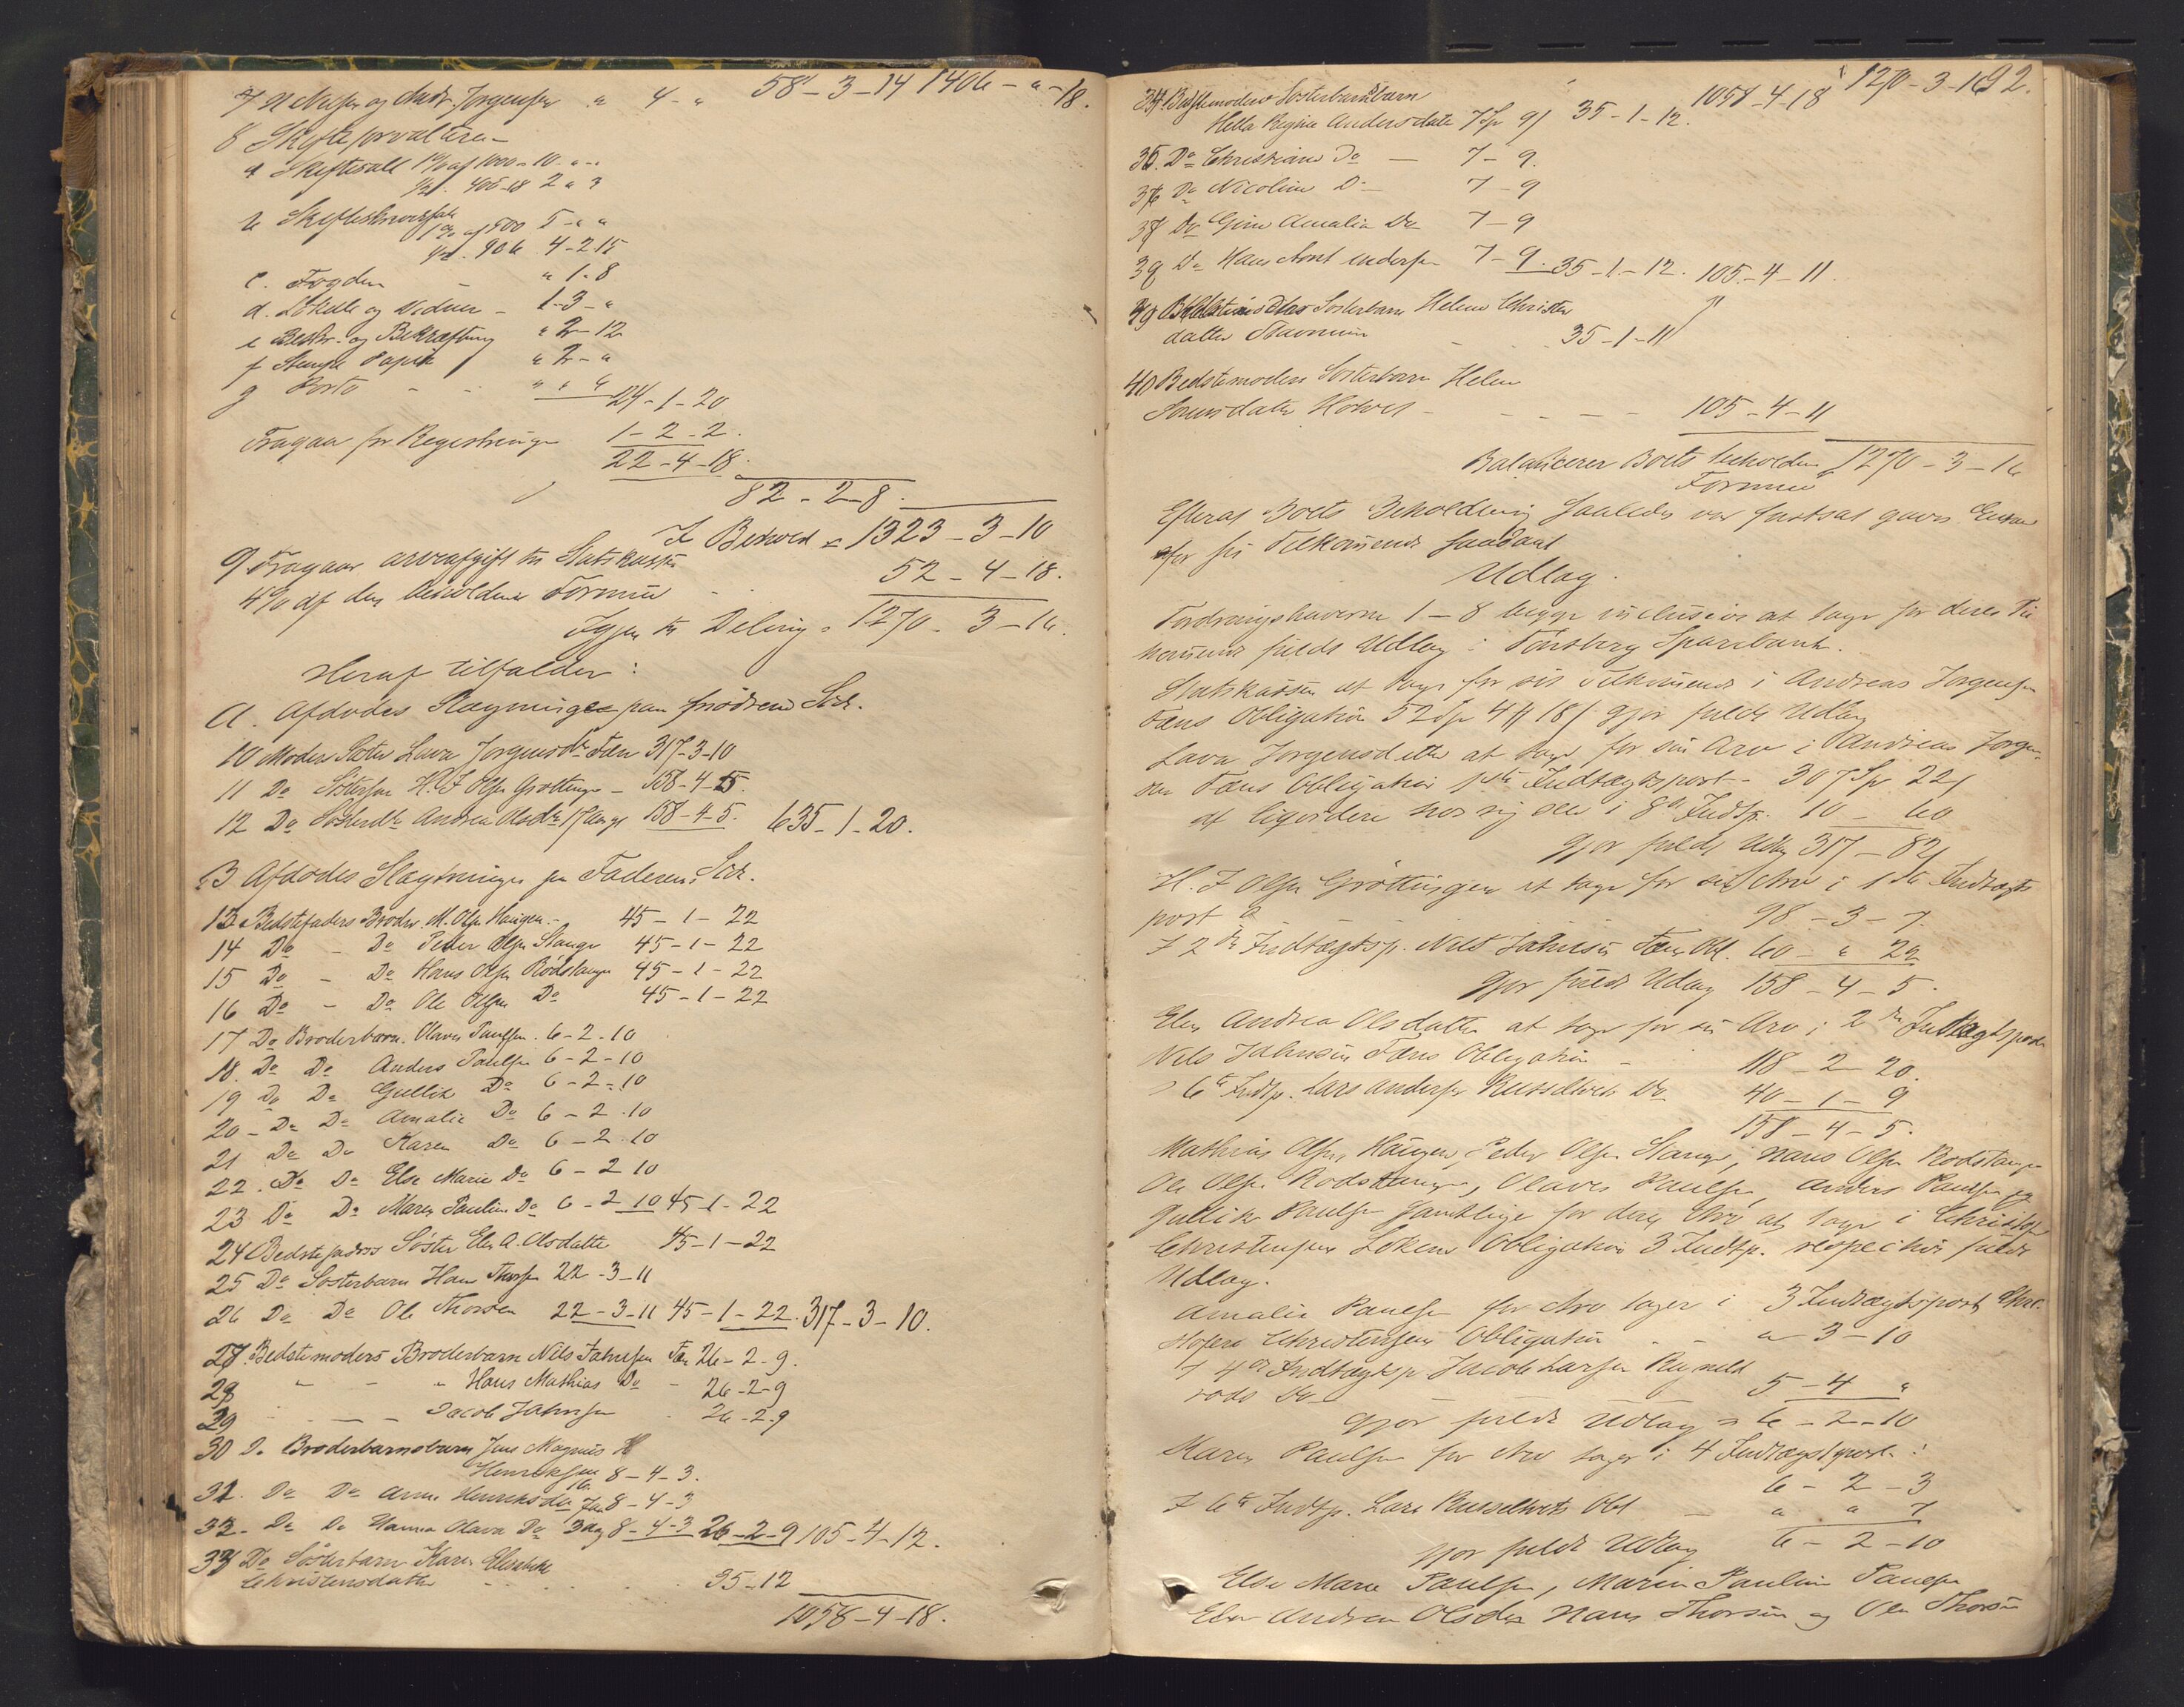 7 N Nilsen og Andr. Jørgensen " 4 - " 58 - 3 - 14 1406 - " - 18.
8 Skifteforvalteren
a Skiftesall 1% af 1000 - 10 - " - "
½ % . 406-18 2 " 3
b
1% af 500 5 - " "
½ % . 906 4 - 2 15
c. Fogden - " 1 - 8
d. Lokale og Vidner - 1 - 3 - "
e Beskr. og Bekræftning " 2 - 12
f Stemplt Papir " 2 - "
g Porto - - " "
24 - 1 - 20
Fragaar for Registreringen 1 - 2 - 2.
22 - 4 - 18.
82 - 2 - 8.
I Behold = 1323 - 3 - 10
9 Fragaar arveafgift til Statskassen
4% af den beholdne Formue - 52 - 4 - 18.
Igjen til Deling = 1270 - 3 - 16.
Heraf tilfalder:
A. Afdødes Slægtninge paa Moderens Side.
10 Moders Søster Lava Jørgensdtr Fæn 317-3-10
11 Do Søstersøn H. J. Olsen Grøttingen - 158-4-5.
12 Do Søsterdtr Andrea Olsdtr 158-4-5. 635-1-20.
B Afdødes Slægtninge paa Faderens Side.
13 Bedstefaders Broder M. Olsen Haugen - 45 - 1 - 22
14 Do - Do Peder Olsen Stange 45 - 1 - 22
15 Do - Do Hans Olsen Rødstangen 45 - 1 - 22
16 Do - Do Ole Olsen Do 45 - 1 - 22
17 Do Broderbarn Olaves Paulsen. 6 - 2 - 10
18. Do Do Anders Paulsen 6 - 2 - 10
19 Do Do Gullik Do 6 - 2 - 10
20 - Do Do Amalie Do 6 - 2 - 10
21 Do Do Karen Do 6 - 2 - 10
22. Do Do Else Marie Do 6 - 2 10
23 Do Do Maren Pauline Do 6 - 2 10 45 - 1 - 22
24 Bedstefaders Søster Elen A. Olsdatter 45 - 1 - 22
25 Do Søsterbarn Hans Thorsen 22 - 3 - 11
26 Do Do Ole Thorsen 22 - 3 - 11 45 - 1 - 22. 317 - 3 - 10.
27. Bedstemoders Broderbarn Nils Jahnsen Fæn 26 - 2 - 9.
28 " - - " Hans Mathias Do - 26 - 2 - 9
29 - - - Jacob Jahnsen . 26 - 2 - 9
30 Do Broderbarnsbarn Jens Magnus
Henriksen 8 - 4 - 3.
31. Do Do Anne Henriksdtr 8 - 4 - 3
32 - Do Do Hanna Olava Do 8 - 4 - 3 26 - 2 - 9 105 - 4 - 12.
33 Do Søsterbarn Karen Elisabeth
Christensdatter - - . . . . 35 - 12
1058 - 4 - 18.
92.
1058 - 4 - 18 1270 - 3 - 16
34 Bedstemoders Søsterbarnsbarn
Hella Regine Andersdatter 7 Sp 9 35 - 1 - 12.
35. Do Christiane Do - 7 - 9.
36 Do Nicoline Do - 7 - 9
37 Do Gine Amalia Do 7 - 9
38 Do Hans Arnt Andersen 7 - 9. 35 - 1 - 12. 105 - 4 - 11.
39 Søsterbarn Helene Christen
datter - - . 35 - 1 - 11
40 Bedstemoders Søsterbarn Helene
Sørensdatter - - - - - 105 - 4 - 11
Balancerer Boets beholdne 1270 - 3 - 16
Formue
Efterat Boets Beholdning saaledes var fastsat gaves Enhver
for sit Tilkommende saadant
Udlæg.
Fordringshaverne 1 - 8 begge inclusive at tage for deres Til
kommende fulde Udlæg i Tønsberg Sparebank.
Statskassen at tage for sit Tilkommende i Andreas Jørgensen
Fæns Obligation 52 Sp 4 18 gjør fulde Udlæg
Lava Jørgensdatter at tage for sin Arv i Andreas Jørgen-
sen Fæns Obligation 1ste Indtægtspost - 307 Sp 22
at liqvidere hos sig selv i 8de Indtp. 10 - 60
gjør fulde Udlæg 317 - 82
H. J Olsen Grøttingen at tage for sin Arv i 1ste Indtægts
post a 98 - 3 - 7.
I 2den Indtægtsp. Nils Jahnsen Fæns Obl. 60 - " 22
gjør fulde Udlæg 158 - 4 - 5.
Elen Andrea Olsdatter at tage for sin Arv i 2den Indtægtspost
Nils Jahnsen Fæns Obligation - 118 - 2 20.
I 6te Indtp. Lars Andersen Do 40 - 1 - 9
158 - 4 - 5.
Mathias Olsen Haugen, Peder Olsen Stange, Hans Olsen Rødstangen
Ole Olsen Rødstangen, Olaves Paulsen, Anders Paulsen og
Gullik Paulsen samtlige for deres Arv at tage i Christopher
Christensens Løkens Obligation 3 Indtp. respective fulde
Udlæg.
Amalie Paulsen for Arv tager i 3 Indtægtspost Chri-
stofers Christensens Obligation . - " 3 - 10
I 4de Indtægtsp Jacob Larsen
røds Do - - - 5 - 4 "
gjør fulde Udlæg = 6 - 2 - 10
Karen Paulsen for Arv tager i 4 Indtægtspost:
6 - 2 - 3
I 6te Indtp. Lars Obl - " " 7
gjør fulde Udlæg 6 - 2 - 10
Else Marie Paulsen, Maren Pauline Paulsen
Elen Andrea Olsdtr Hans Thorsen og Ole Thorsen